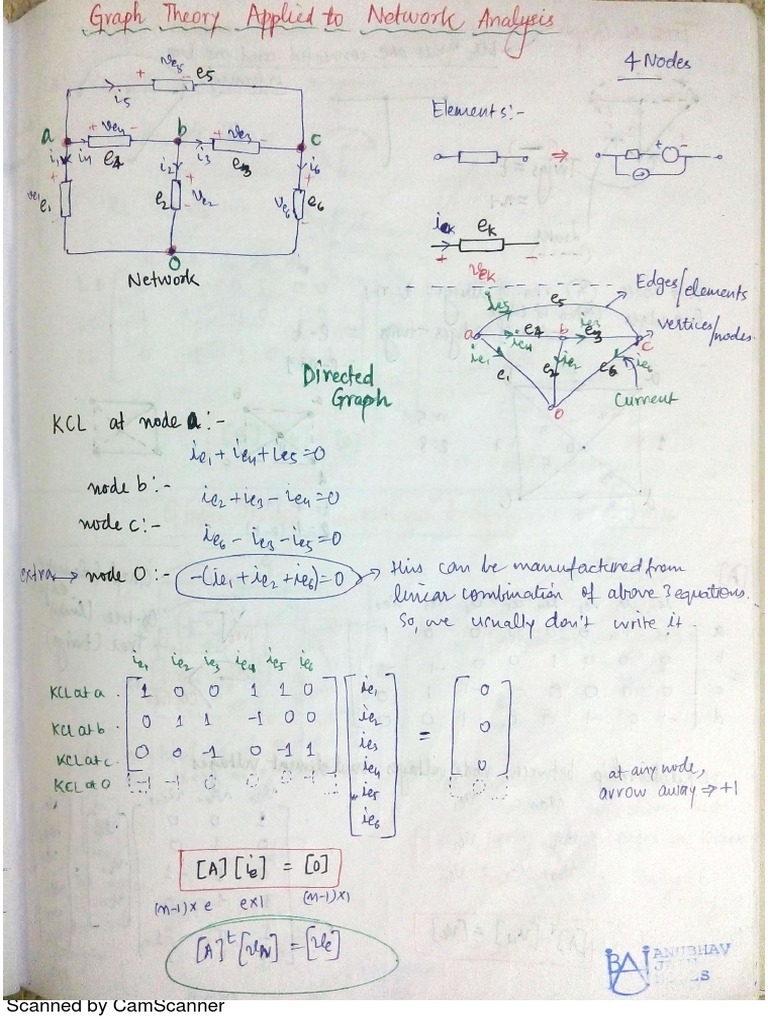 Graph Theory Applied to Network Analysis
4 Nodes
+ ve5 - e5
i5
a + ve4 - b + ve3 - c
i1 i4 e4 i2 i3 e3 i6
ve1 e1 e2 ve2 ve6 e6
0
Network
Elements:-
⇒
iek ek
+ vek -
Edges/elements
ie5 e5
vertices/nodes
a ie4 e4 b ie3 e3 c
ie1 e1 e2 ie2 e6 ie6
0
Current
Directed
Graph
KCL at node a:-
ie1 + ie4 + ie5 = 0
node b:-
ie2 + ie3 - ie4 = 0
node c:-
ie6 - ie3 - ie5 = 0
extra → node 0:- -(ie1 + ie2 + ie6) = 0 → this can be manufactured from
linear combination of above 3 equations.
So, we usually don't write it.
ie1 ie2 ie3 ie4 ie5 ie6
KCL at a 1 0 0 1 1 0 ie1 0
KCL at b 0 1 1 -1 0 0 ie2 = 0
KCL at c 0 0 -1 0 -1 1 ie3 0
KCL at 0 -1 -1 0 0 0 -1 ie4
ie5
ie6
at any node,
arrow away ⇒ +1
[A] [ie] = [0]
(n-1) x e e x 1 (n-1) x 1
[A]t [vN] = [ve]
ANUBHAV
Scanned by CamScanner